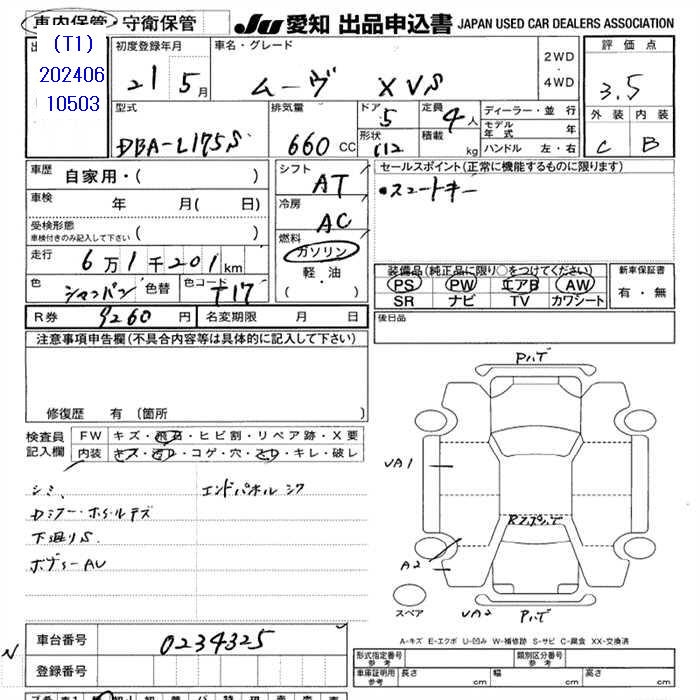 車内保管・守衛保管 JU 愛知 出品申込書 JAPAN USED CAR DEALERS ASSOCIATION
(T1)
202406
10503
初度登録年月 車名・グレード 2WD・4WD 評価点
21 5月 ムーヴ XVS 3.5
型式 排気量 ドア 5 定員 4人 ディーラー・並行 外装 内装
DBA-L175S 660 CC 形状 積載 kg モデル年式 年 C B
ハンドル 左・右
車歴 自家用・( ) シフト AT セールスポイント(正常に機能するものに限ります)
車検 年 月( 日) 冷房 AC ・スマートキー
受検形態 ( )
車検付きのみ記入して下さい
燃料 ガソリン
軽・油
( )
走行 6万1千201km 装備品(純正品に限り○をつけてください) 新車保証書
色 シャンパン 色替 色コード T17 PS PW エアB AW 有・無
SR ナビ TV カワシート
R券 9260円 名変期限 月 日 後日品
注意事項申告欄(不具合内容等は具体的に記入して下さい)
修復歴 有 〔箇所 〕
検査員記入欄 FW キズ・飛石・ヒビ割・リペア跡・X要
内装 キズ・汚れ・コゲ・穴・スレ・キレ・破レ
シミ、 エンドパネルシワ
Dミラー・ホイールキズ
下廻りS
ボディーAU
Pハゲ
UA1
A2
スペア
UA2 Pハゲ
A-キズ E-エクボ U-凹み W-補修跡 S-サビ C-腐食 XX-交換済
車台番号 0234325
登録番号
N
形式指定番号 参考 類別区分番号 参考
車庫証明用 参考 長さ cm 幅 cm 高さ cm